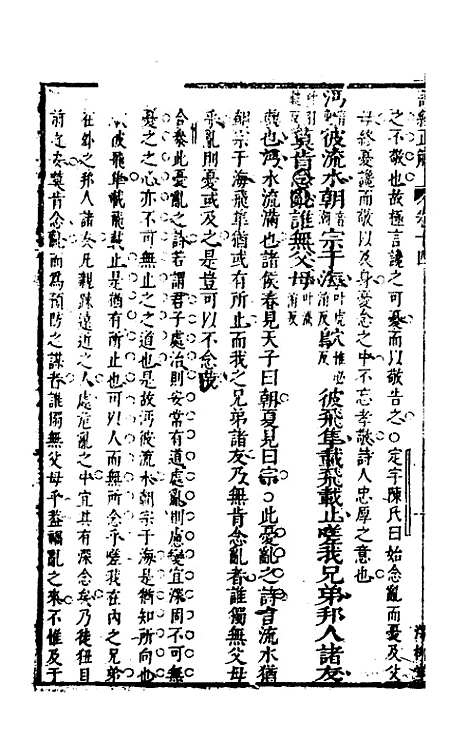 詩經正解　卷十四
之不敬也故極言讒之可憂而以敬告之○定宇陳氏曰始念亂而憂及父
母終憂讒而敬以及身憂念之中不忘孝敬詩人忠厚之意也
沔彼流水朝宗于海 彼飛隼載飛載止嗟我兄弟邦人諸友
莫肯念亂誰無父母
興也沔水流滿也諸侯春見天子曰朝夏見曰宗○此憂亂之詩言流水猶
朝宗于海飛隼猶或有所止而我之兄弟諸友乃無肯念亂者誰獨無父母
乎亂則憂或及之是豈可以不念哉
合參此憂亂之詩若謂君子處治則安常有道處亂則慮變宜深周不可無
憂之之心亦不可無止之之道也是故沔彼流水朝宗于海是猶知所向也
彼飛隼載飛載止是猶有所止也可以人而無所念乎嗟我在內之兄弟
在外之邦人諸友凡親踈遠近之人處危亂之中宜具有深念矣乃徒狃目
前之安莫肯念亂而為預防之謀者誰獨無父母乎蓋禍亂之來不惟及于